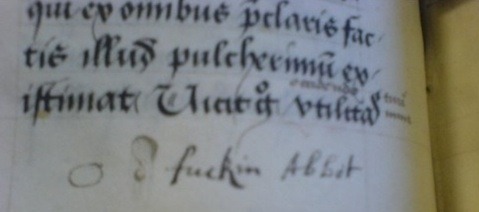 qui ex om̅ibus p̅claris fac-
tis illud̅ pulcherimu̅ ex-
istimat Vicit
O d fuckin Abbot